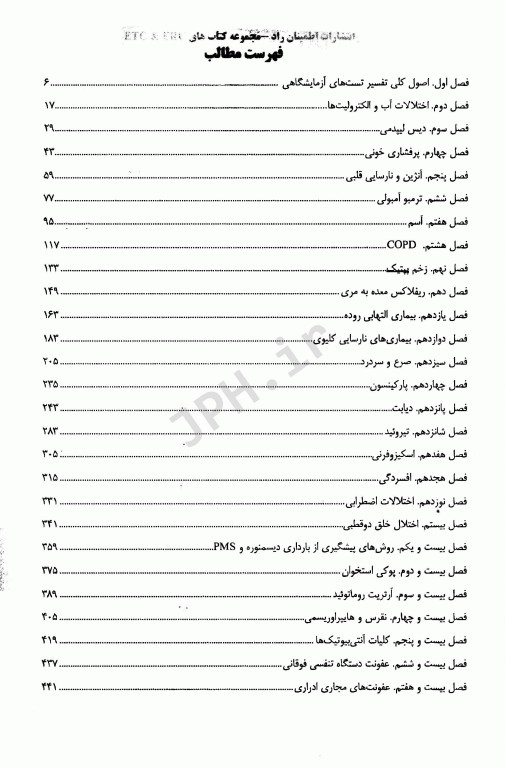 انتشارات اطمینان راد -مجموعه کتاب های ETC & ERU
فهرست مطالب
فصل اول. اصول کلی تفسیر تست‌های آزمایشگاهی ........ ۶
فصل دوم. اختلالات آب و الکترولیت‌ها ........ ۱۷
فصل سوم. دیس لیپیدمی ........ ۲۹
فصل چهارم. پرفشاری خونی ........ ۴۳
فصل پنجم. آنژین و نارسایی قلبی ........ ۵۹
فصل ششم. ترمبو آمبولی ........ ۷۷
فصل هفتم. آسم ........ ۹۵
فصل هشتم. COPD ........ ۱۱۷
فصل نهم. زخم پپتیک ........ ۱۳۳
فصل دهم. ریفلاکس معده به مری ........ ۱۴۹
فصل یازدهم. بیماری التهابی روده ........ ۱۶۳
فصل دوازدهم. بیماری‌های نارسایی کلیوی ........ ۱۸۳
فصل سیزدهم. صرع و سردرد ........ ۲۰۵
فصل چهاردهم. پارکینسون ........ ۲۳۵
فصل پانزدهم. دیابت ........ ۲۴۳
فصل شانزدهم. تیروئید ........ ۲۸۳
فصل هفدهم. اسکیزوفرنی ........ ۳۰۵
فصل هجدهم. افسردگی ........ ۳۱۵
فصل نوزدهم. اختلالات اضطرابی ........ ۳۳۱
فصل بیستم. اختلال خلق دوقطبی ........ ۳۴۱
فصل بیست و یکم. روش‌های پیشگیری از بارداری دیسمنوره و PMS ........ ۳۵۹
فصل بیست و دوم. پوکی استخوان ........ ۳۷۵
فصل بیست و سوم. آرتریت روماتوئید ........ ۳۸۹
فصل بیست و چهارم. نقرس و هایپراوریسمی ........ ۴۰۵
فصل بیست و پنجم. کلیات آنتی‌بیوتیک‌ها ........ ۴۱۹
فصل بیست و ششم. عفونت دستگاه تنفسی فوقانی ........ ۴۳۷
فصل بیست و هفتم. عفونت‌های مجاری ادراری ........ ۴۴۱
JPH.ir